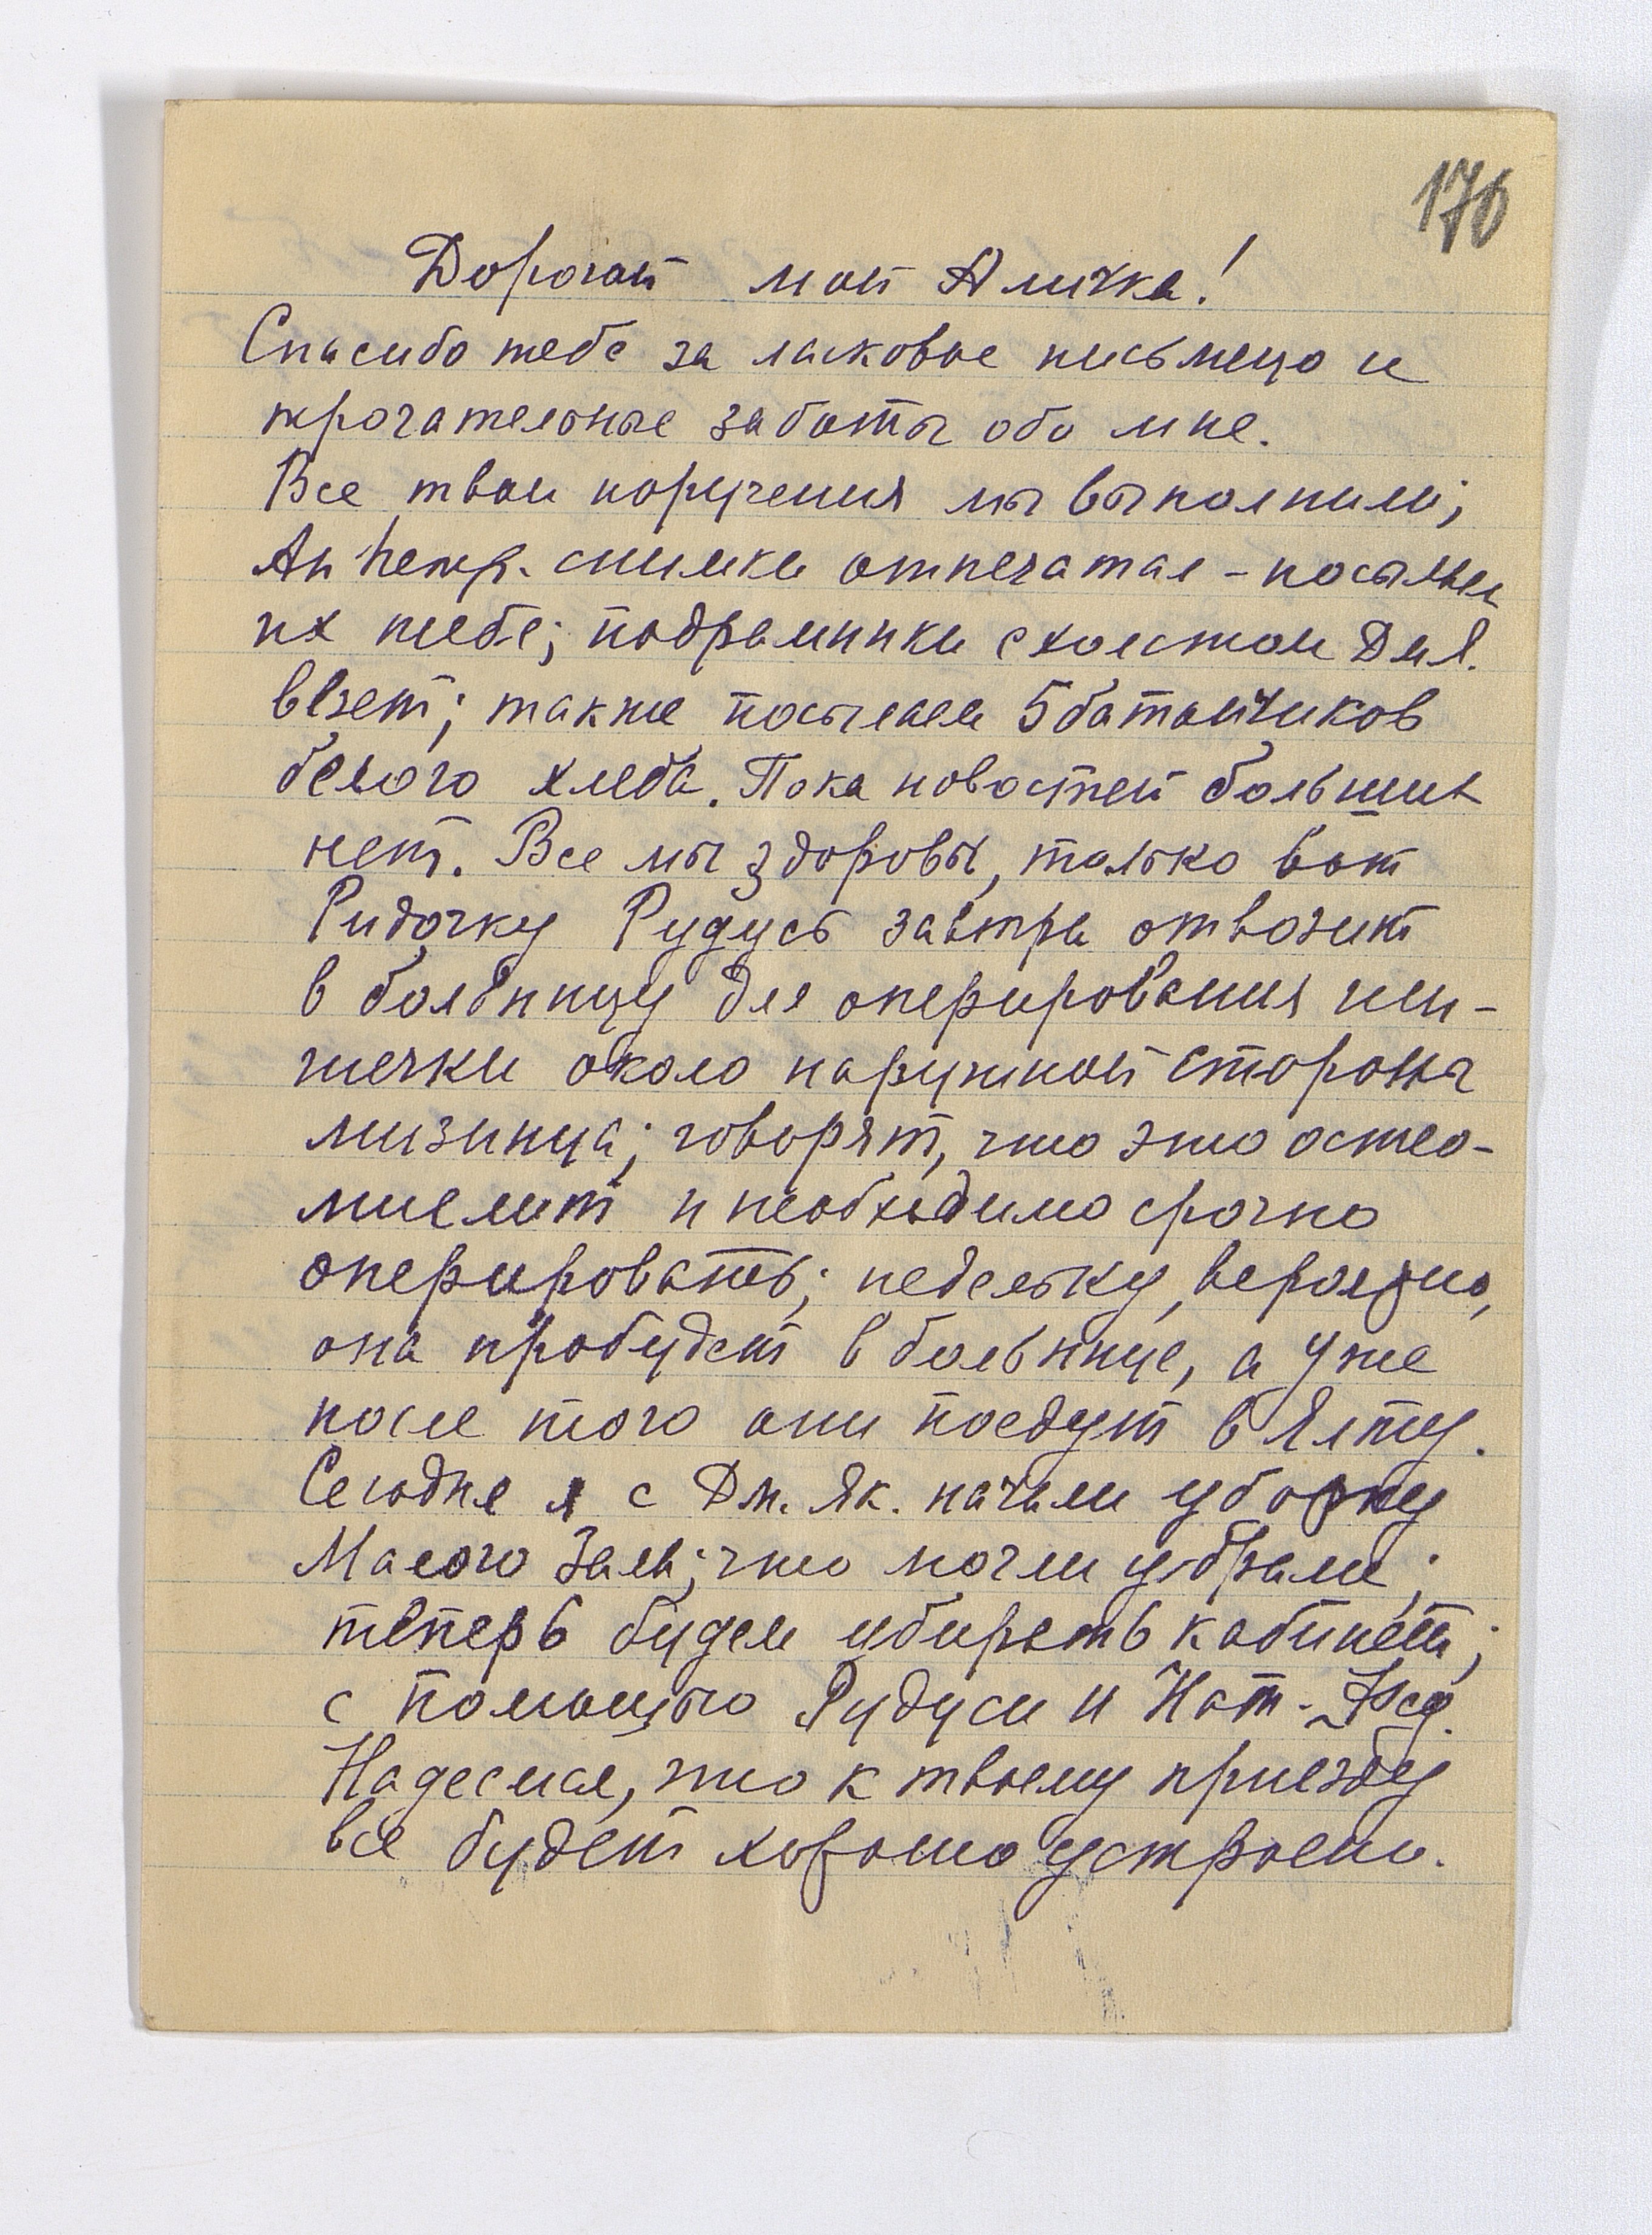 176
Дорогой мой Аличка!
Спасибо тебе за ласковое письмецо и
трогательные заботы обо мне.
Все твои поручения мы выполнили;
Ан Петр. снимки отпечатал – посылаем
их тебе; подрамники с холстом Дм Я.
везет; также посылаем 5 батончиков
белого хлеба. Пока новостей больших
нет. Все мы здоровы, только вот
Ридочку Рудусь завтра отвозит
в больницу для оперирования ши-
шечки около наружной стороны
мизинца; говорят, что это остео-
миелит и необходимо срочно
оперировать; недельку, вероятно,
она пробудет в больнице, а уже
после того они поедут в Ялту.
Сегодня я с Дм. Як. начали уборку
Малого зала; что могли убрали;
теперь будем убирать кабинет;
с помощью Рудуси и Нат. Фед.
Надеемся, что к твоему приезду
все будет хорошо устроено.